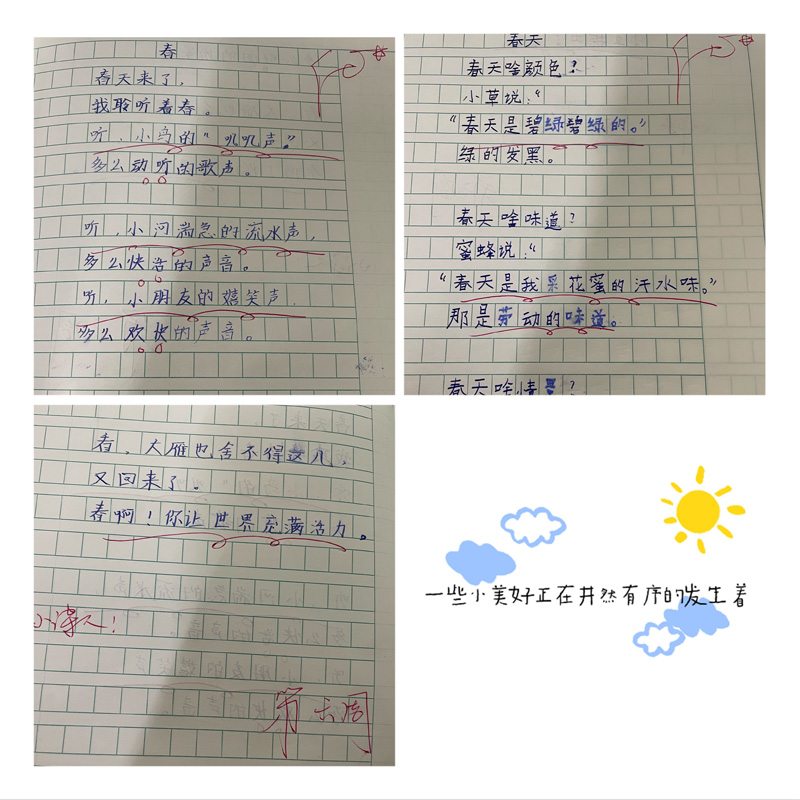 春
春天来了,
我聆听着春。
听,小鸟的“叽叽声”。
多么动听的歌声。
听,小河湍急的流水声,
多么快活的声音。
听,小朋友的嬉笑声,
多么欢快的声音。
春天
春天啥颜色?
小草说:“
“春天是碧绿碧绿的。”
绿的发黑。
春天啥味道?
蜜蜂说:“
“春天是我采花蜜的汗水味。”
那是劳动的味道。
春天啥情景?
看,大雁也舍不得这儿,
又回来了。
春啊!你让世界充满活力。
小诗人!
第六周
一些小美好正在井然有序的发生着